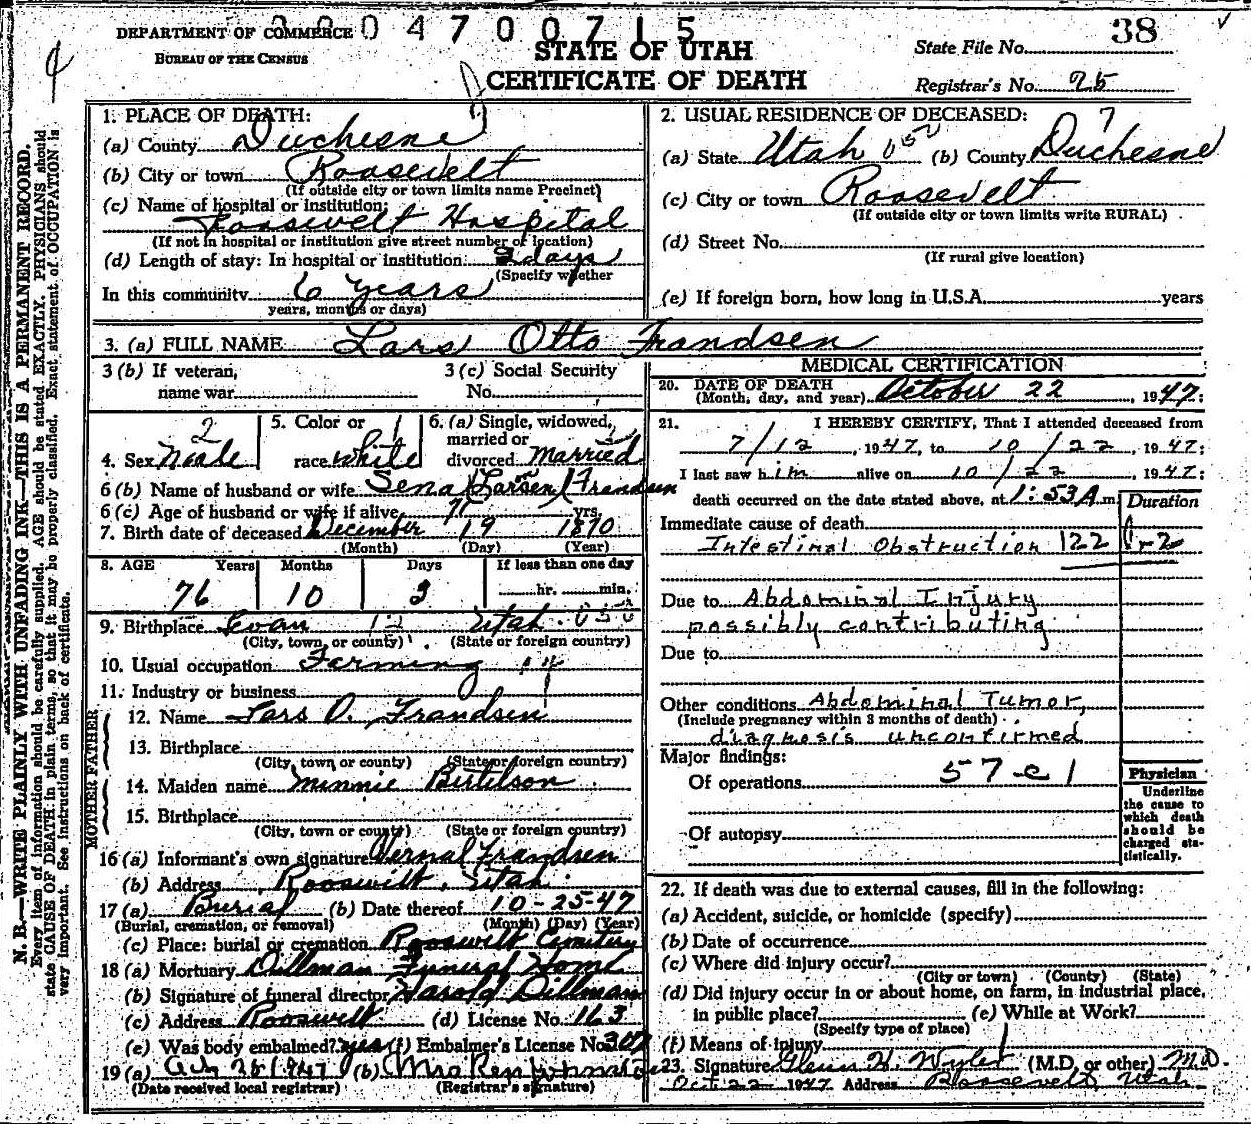 3004700715
DEPARTMENT OF COMMERCE
BUREAU OF THE CENSUS
STATE OF UTAH
CERTIFICATE OF DEATH
38
State File No.
Registrar's No. 25
N. B.—WRITE PLAINLY WITH UNFADING INK—THIS IS A PERMANENT RECORD.
Every item of information should be carefully supplied. AGE should be stated EXACTLY. PHYSICIANS should
state CAUSE OF DEATH in plain terms, so that it may be properly classified. Exact statement of OCCUPATION is
very important. See instructions on back of certificate.
1. PLACE OF DEATH:
(a) County Duchesne
(b) City or town Roosevelt
(If outside city or town limits name Precinct)
(c) Name of hospital or institution:
Roosevelt Hospital
(If not in hospital or institution give street number or location)
(d) Length of stay: In hospital or institution: days
(Specify whether
In this community 6 years
years, months or days)
2. USUAL RESIDENCE OF DECEASED:
7
(a) State Utah (b) County Duchesne
(c) City or town Roosevelt
(If outside city or town limits write RURAL)
(d) Street No.
(If rural give location)
(e) If foreign born, how long in U.S.A. years
3. (a) FULL NAME Lars Otto Frandsen
3 (b) If veteran,
name war
3 (c) Social Security
No.
2
4. Sex Male
5. Color or 1
race White
6. (a) Single, widowed,
married or
divorced Married
6 (b) Name of husband or wife Sena (Larsen) Frandsen
6 (c) Age of husband or wife if alive yrs.
7. Birth date of deceased December 19 1870
(Month) (Day) (Year)
8. AGE Years Months Days If less than one day
76 10 3 hr. min.
9. Birthplace Levan 12 Utah
(City, town, or county) (State or foreign country)
10. Usual occupation Farming
11. Industry or business
FATHER
12. Name Lars O. Frandsen
13. Birthplace
(City, town or county) (State or foreign country)
MOTHER
14. Maiden name Minnie Bertelson
15. Birthplace
(City, town or county) (State or foreign country)
16 (a) Informant's own signature Vernal Frandsen
(b) Address Roosevelt, Utah
17 (a) Burial (b) Date thereof 10-25-47
(Burial, cremation, or removal) (Month) (Day) (Year)
(c) Place: burial or cremation Roosevelt Cemetery
18 (a) Mortuary Dillman Funeral Home
(b) Signature of funeral director Harold Dillman
(c) Address Roosevelt (d) License No. 163
(e) Was body embalmed? yes (f) Embalmer's License No.
19 (a) 1947 (b) Mrs
(Date received local registrar) (Registrar's signature)
MEDICAL CERTIFICATION
20. DATE OF DEATH
(Month, day, and year) October 22, 1947;
21. I HEREBY CERTIFY, That I attended deceased from
7/12, 1947, to 10/22, 1947;
I last saw him alive on 10/22, 1947;
death occurred on the date stated above, at 1:53A m.
Duration
Immediate cause of death
Intestinal Obstruction 122
Due to Abdominal Injury
possibly contributing
Due to
Other conditions Abdominal Tumor,
(Include pregnancy within 3 months of death)
diagnosis unconfirmed
Major findings:
Of operations 57-e1
Of autopsy
Physician
Underline
the cause to
which death
should be
charged sta-
tistically.
22. If death was due to external causes, fill in the following:
(a) Accident, suicide, or homicide (specify)
(b) Date of occurrence
(c) Where did injury occur?
(City or town) (County) (State)
(d) Did injury occur in or about home, on farm, in industrial place,
in public place? (e) While at Work?
(Specify type of place)
(f) Means of injury
23. Signature Glenn H. (M.D. or other) M.D.
Oct 22 1947 Address Roosevelt, Utah